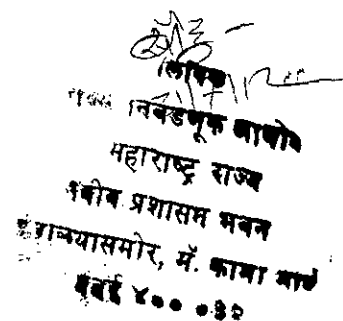 लिपिक
राज्य निवडणूक आयोग
महाराष्ट्र राज्य
नवीन प्रशासन भवन
मंत्रालयासमोर, मॅ. कामा मार्ग
मुंबई ४०० ०३२